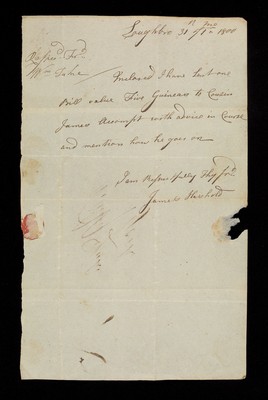 Loughbro 31st 1 mo 1800
Respec'd Frd
Wm
Inclosed I have sent one
Bill value Five Guineas to Cousin
James Accompt with advice in Course
and mention how he goes on
I am Respectfully Thy frd
James